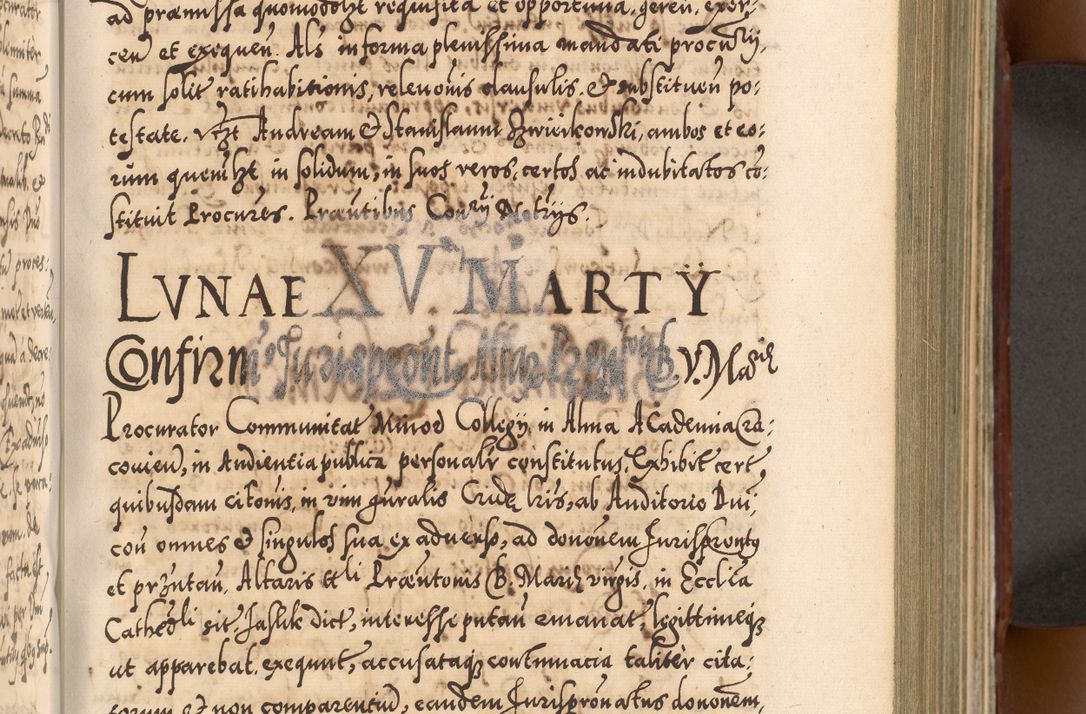 ad præmissa quomodolt requisita et opportuna, geren, exer:
cen et exequen. Als in forma plenissima mandati procurÿ,
cum solit ratihabitionis, relevonis clausulis. & substituen po:
testate. vzt Andream & Stanislaum Zwierkowski, ambos et eo:
rum quemlt in solidum, in suos veros, certos ac indubitatos co:
stituit Procures. Præntibus Conrÿ Notrÿs.
LVNAE XV. MARTŸ
Confirm Jurisprontt Altar B. V. Mariæ
Procurator Communitat Minor Collegÿ, in Alma Academia Cra:
covien, in Audientia publica personalr constitutus, Exhibit cert
quibusdam citonis, in vim guralis Cridæ lris, ab Auditorio Dni,
con omnes & singulos sua ex adverso, ad dononem Jurisprontg
et przntan. Altaris ttli Præntonis B. Mariæ virgis, in Ecclia
Cathedli sit, Jaslik dict, interesse putan emanat, legittimeq3
ut apparebat, exequut, accusataq3 contumacia taliter cita:
torum & non comparentiu, eandem Jurispronatus dononem,